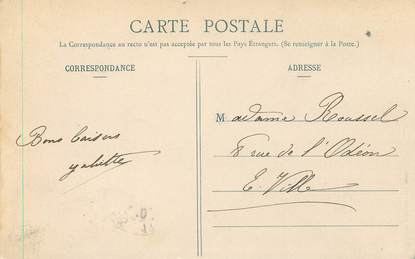 CARTE POSTALE
La Correspondance au recto n'est pas acceptée par tous les Pays Étrangers. (Se renseigner à la Poste.)
CORRESPONDANCE
ADRESSE
Madame Roussel
8 rue de l'Odéon
E. Ville
Bons baisers